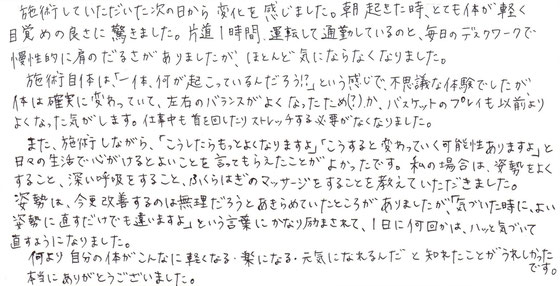 施術していただいた次の日から変化を感じました。朝起きた時、とても体が軽く
目覚めの良さに驚きました。片道1時間、運転して通勤しているのと、毎日のデスクワークで
慢性的に肩のだるさがありましたが、ほとんど気にならなくなりました。
施術自体は、「一体、何が起こっているんだろう!?」という感じで、不思議な体験でしたが、
体は確実に変わっていて、左右のバランスがよくなったため(?)か、バスケットのプレイも以前より
よくなった気がします。仕事中も首を回したりストレッチする必要がなくなりました。
また、施術しながら、「こうしたらもっとよくなりますよ」「こうすると変わっていく可能性ありますよ」と
日々の生活で心がけるとよいことを言ってもらえたことがよかったです。私の場合は、姿勢をよく
すること、深い呼吸をすること、ふくらはぎのマッサージをすることを教えていただきました。
姿勢は、今更改善するのは無理だろうとあきらめていたところがありましたが、「気づいた時に、よい
姿勢に直すだけでも違いますよ」という言葉にかなり励まされて、1日に何回かは、ハッと気づいて
直すようになりました。
何より自分の体がこんなに軽くなる・楽になる・元気になれるんだと知れたことがうれしかった
です。
本当にありがとうございました。